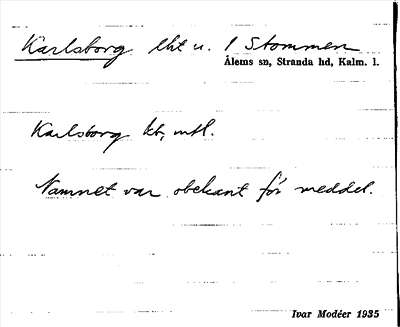 Karlsborg lht u. 1 Stommen
Ålems sn, Stranda hd, Kalm. l.
Karlsborg kb, mtl.
Namnet var obekant för meddel.
Ivar Modéer 1935